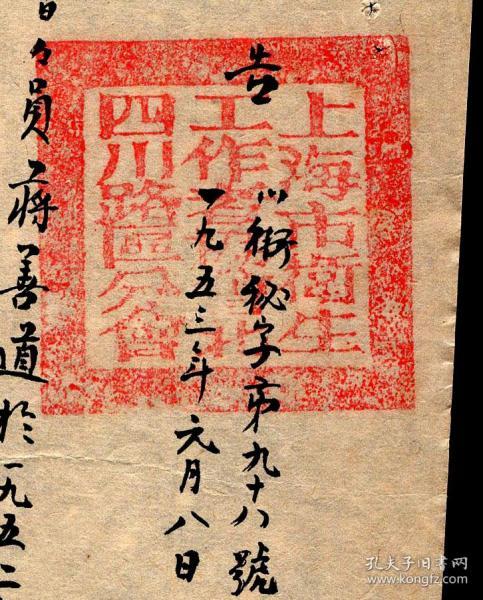 告
川衛秘字第九十八號
一九五三年元月八日
員蔣善道於一九五二
上海市衛生
工作者協會
四川路區分會
孔夫子旧书网
www.kongfz.com